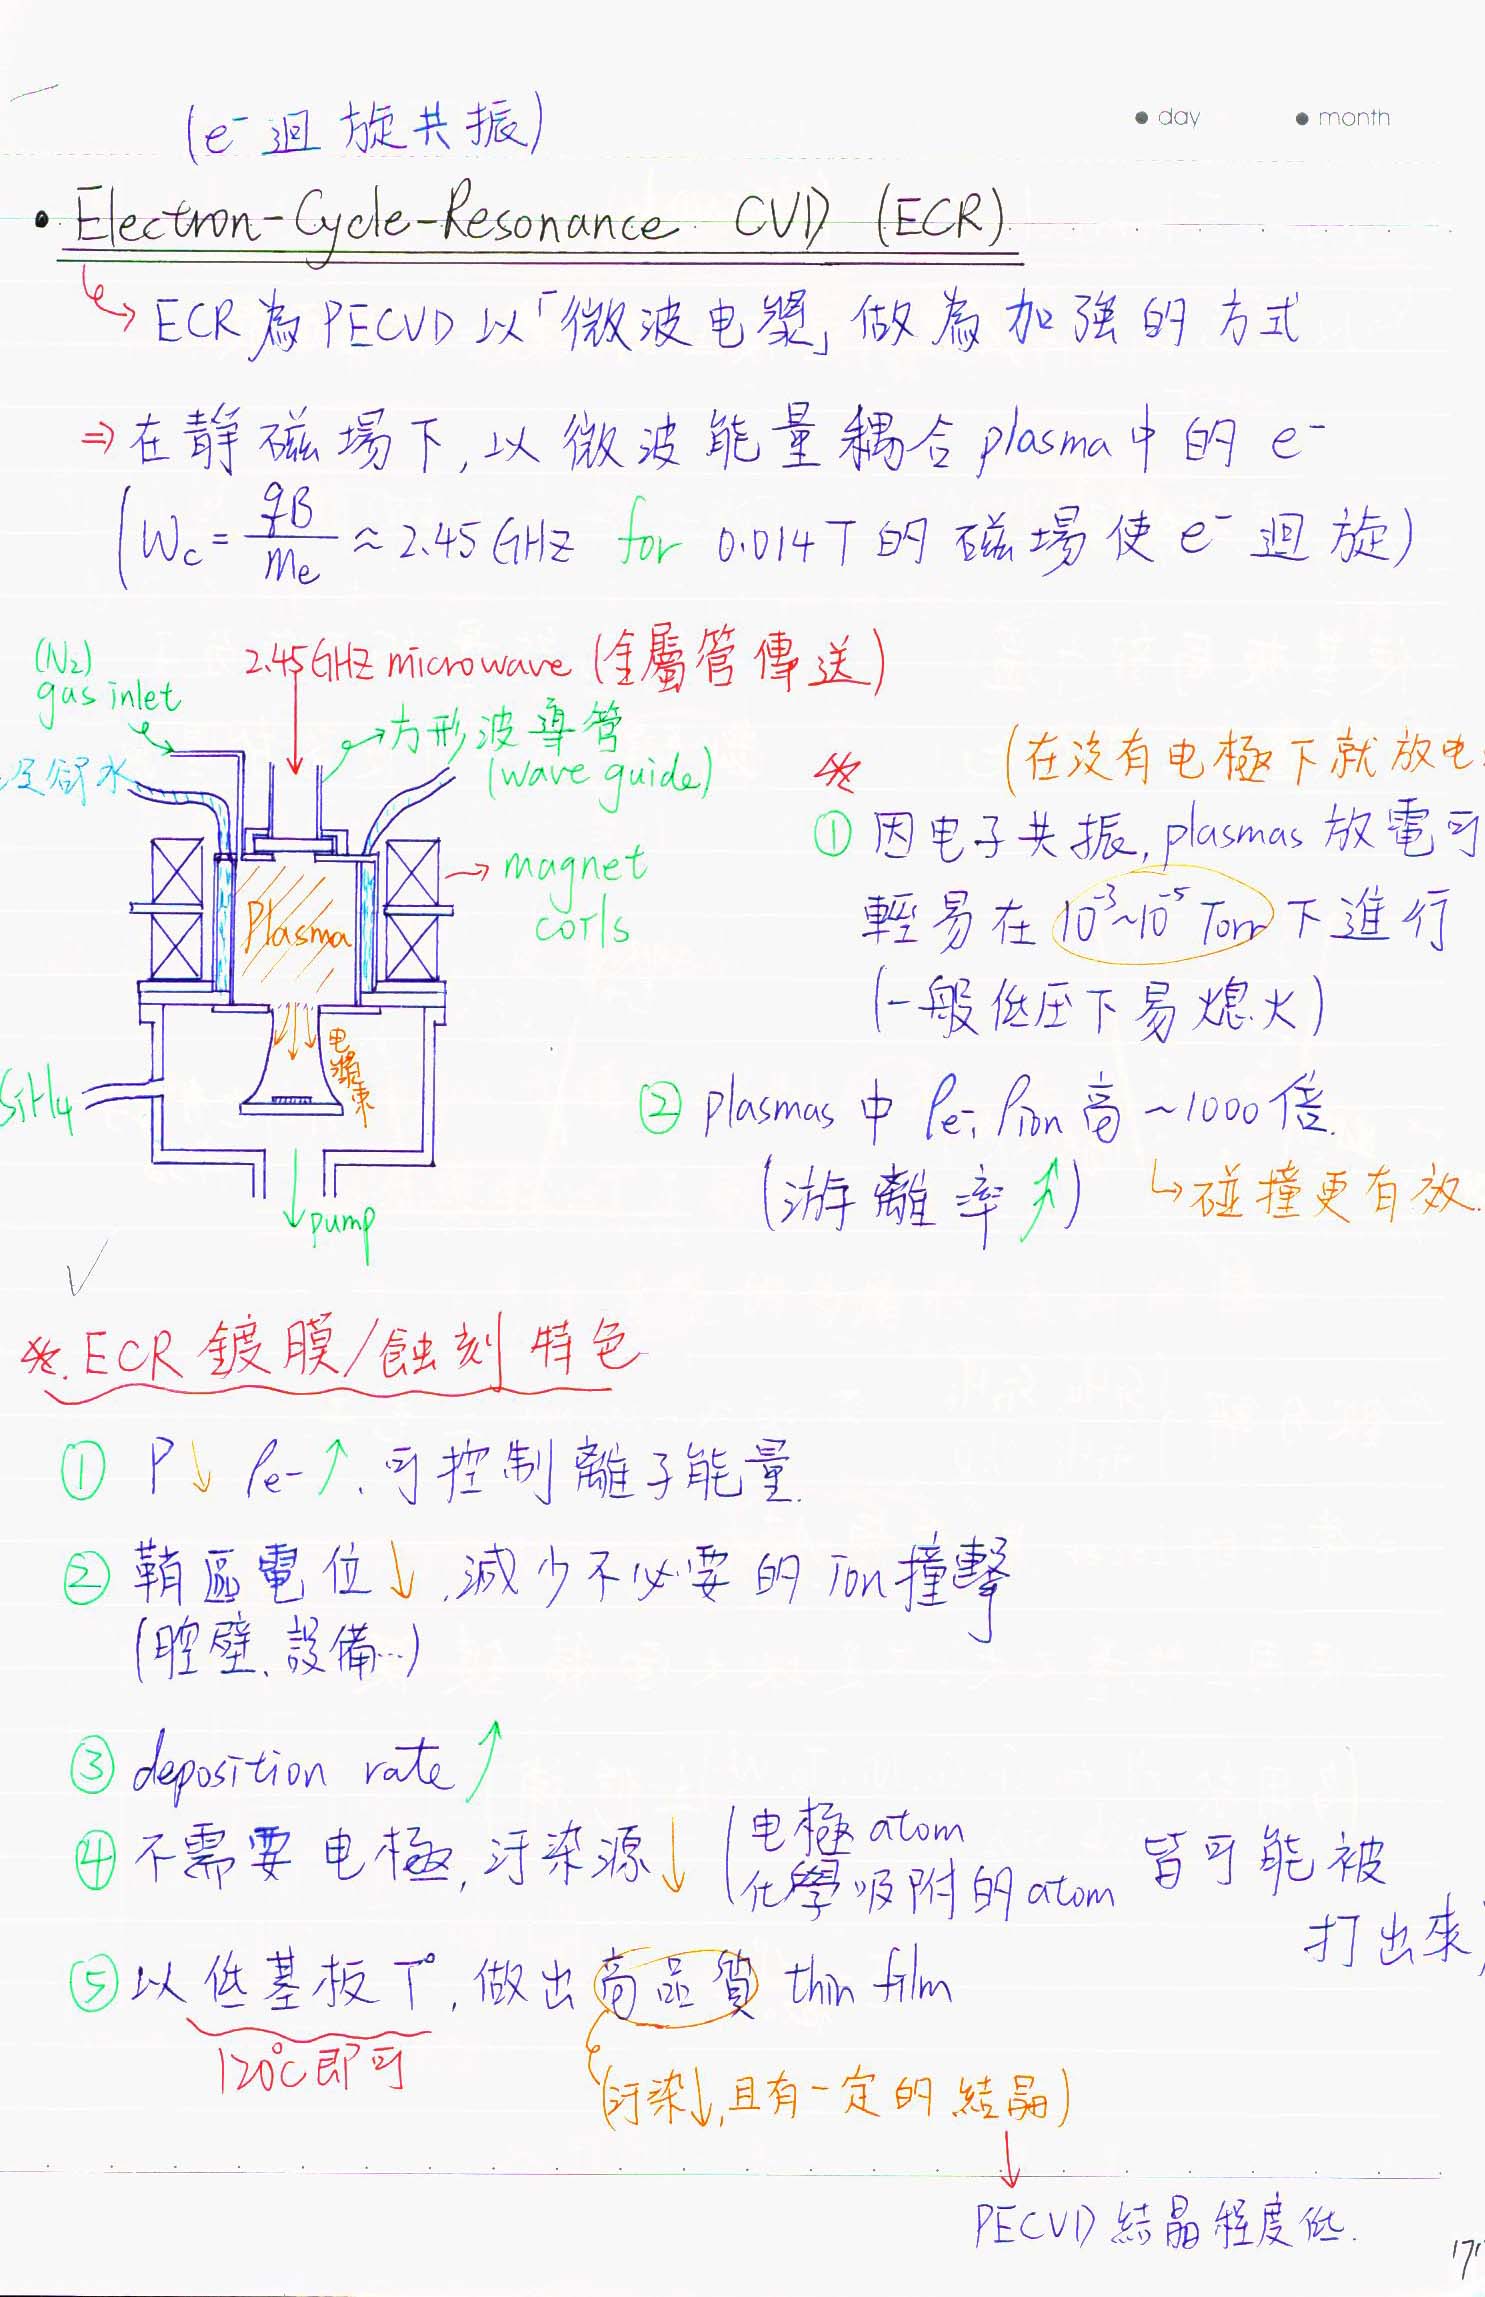 (e⁻ 迴旋共振)
● day ● month
• Electron-Cycle-Resonance CVD (ECR)
↳ ECR為PECVD以「微波电漿」做為加強的方式
⇒ 在靜磁場下,以微波能量耦合plasma中的 e⁻
(Wc = qB/me ≈ 2.45 GHz for 0.014T的磁場使 e⁻ 迴旋)
(N₂)
gas inlet
2.45GHz microwave (金屬管傳送)
→方形波導管
(wave guide)
冷卻水
Plasma
→ magnet
coils
电漿束
SiH₄
pump
※
(在沒有电極下就放电
① 因电子共振, plasmas 放電可
輕易在 10⁻³~10⁻⁵ Torr 下進行
(一般低圧下易熄火)
② plasmas 中 ρe⁻, ρion 高 ~1000倍.
(游離率↑) ↳碰撞更有效.
※. ECR 鍍膜/蝕刻特色
① P↓ ρe-↑. 可控制離子能量.
② 鞘區電位↓,減少不必要的 Ion撞擊
(腔壁、設備…)
③ deposition rate ↑
④ 不需要电極,汙染源↓ (电極atom
化學吸附的atom 皆可能被
打出來)
⑤ 以低基板T°,做出高品質 thin film
120°C即可
(汙染↓,且有一定的結晶)
↓
PECVD 結晶程度低.